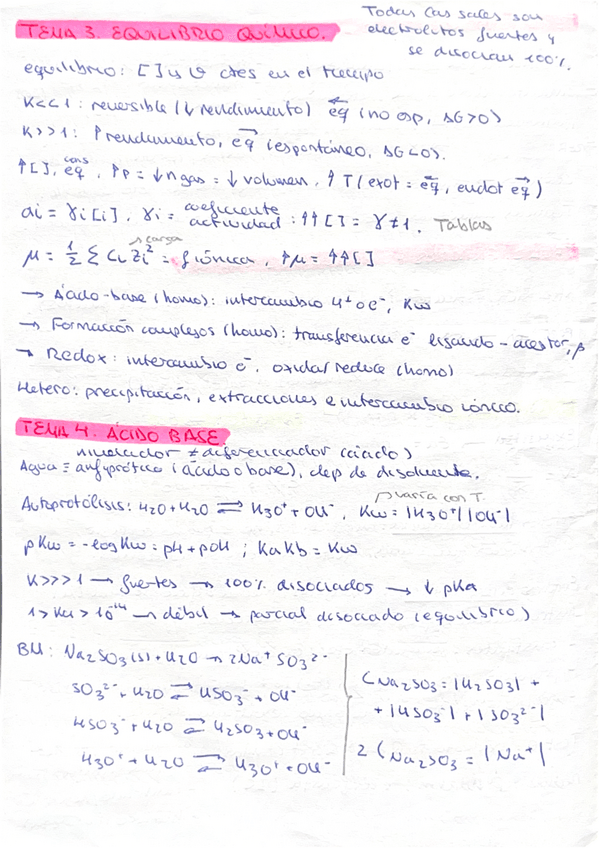 Todas las sales son
electrolitos fuertes y
se disocian 100%.
TEMA 3. EQUILIBRIO QUÍMICO.
equilibrio: [ ] y v ctes en el tiempo
K<<1: reversible (↓ rendimiento) ←eq (no esp, ΔG>0)
K>>1: ↑ rendimiento, →eq (espontáneo, ΔG<0).
↑[ ], cons →eq, ↑p = ↓n gas = ↓ volumen, ↑T (exot = ←eq, endot →eq)
ai = γi [i], γi = coeficiente actividad: ↑↑[ ] = γ≠1. Tablas
μ = 1/2 Σ Ci Zi² → carga = f iónica, ↑μ = ↑↑[ ]
→ Ácido-base (homo): intercambio H⁺ o e⁻, Kw
→ Formación complejos (homo): transferencia e⁻ ligando - aceptor, β
→ Redox: intercambio e⁻. oxidar/reduce (homo)
Hetero: precipitación, extracciones e intercambio iónico.
TEMA 4. ÁCIDO BASE
nivelador ≠ diferenciador (ácido)
Agua = anfiprótica (ácido o base), dep de disolvente.
Autoprotólisis: H2O + H2O ⇌ H3O⁺ + OH⁻, Kw = |H3O⁺| |OH⁻| → varía con T.
pKw = -log Kw = pH + pOH ; Ka Kb = Kw
K>>>1 → fuertes → 100% disociados → ↓ pKa
1 > Ka > 10⁻¹⁴ → débil → parcial disociado (equilibrio)
BM: Na2SO3(s) + H2O → 2Na⁺ SO3²⁻
SO3²⁻ + H2O ⇌ HSO3⁻ + OH⁻
HSO3⁻ + H2O ⇌ H2SO3 + OH⁻
H3O⁺ + H2O ⇌ H3O⁺ + OH⁻
CNa2SO3 = |H2SO3| +
+ |HSO3⁻| + |SO3²⁻|
2 CNa2SO3 = |Na⁺|